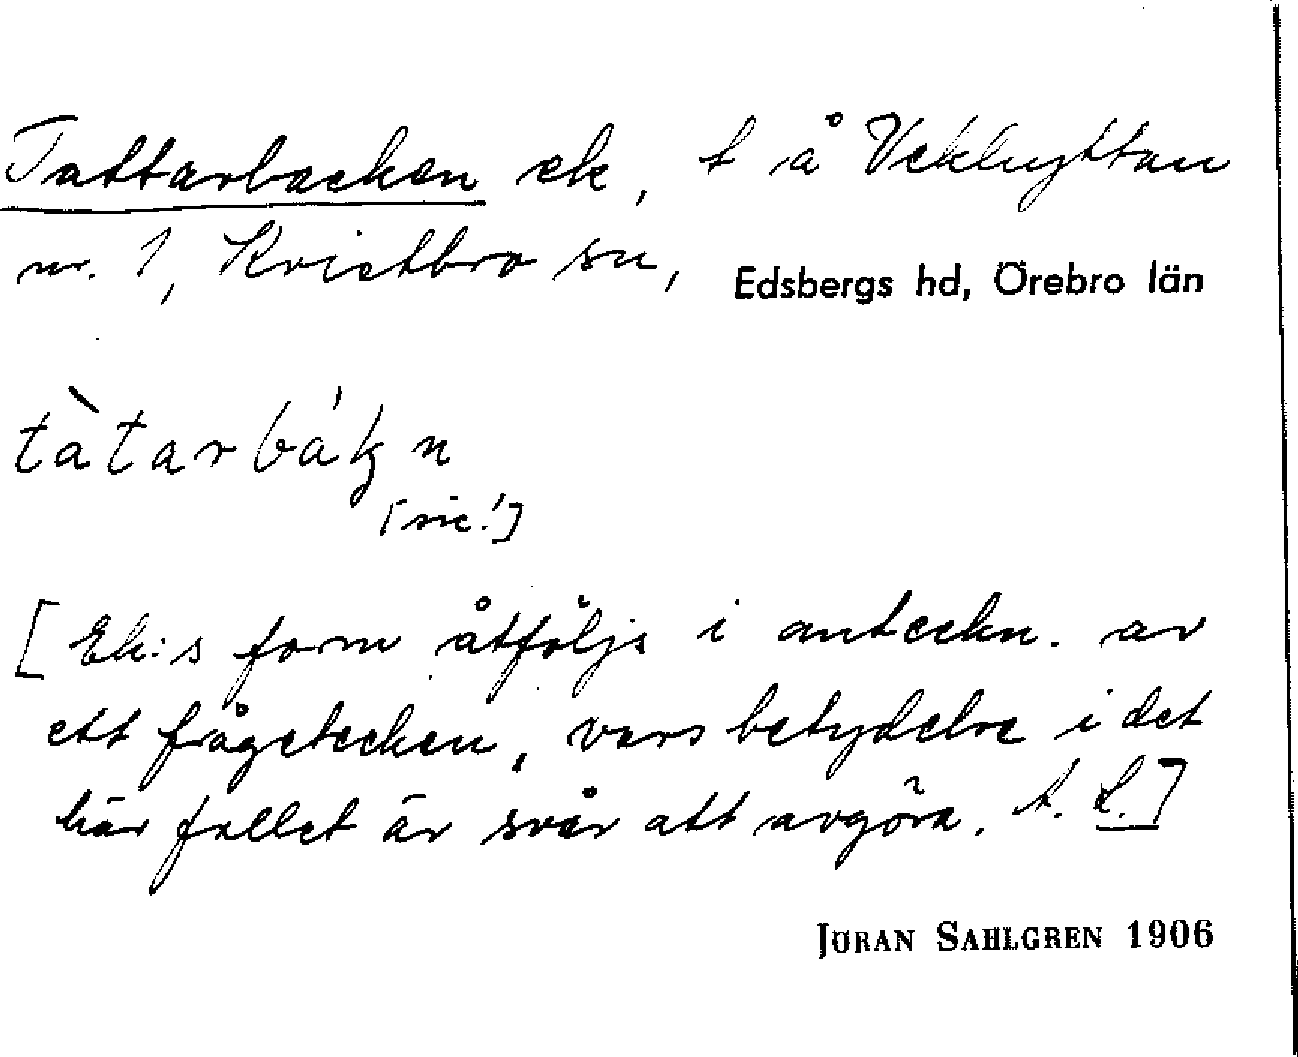 Tattarbacken ek, t å Vekhyttan
nr. 1, Kvistbro sn, Edsbergs hd, Örebro län
tàtarbákn
[sic!]
[Ek:s form åtföljs i anteckn. av
ett frågetecken, vars betydelse i det
här fallet är svår att avgöra. A. L.]
JÖRAN SAHLGREN 1906